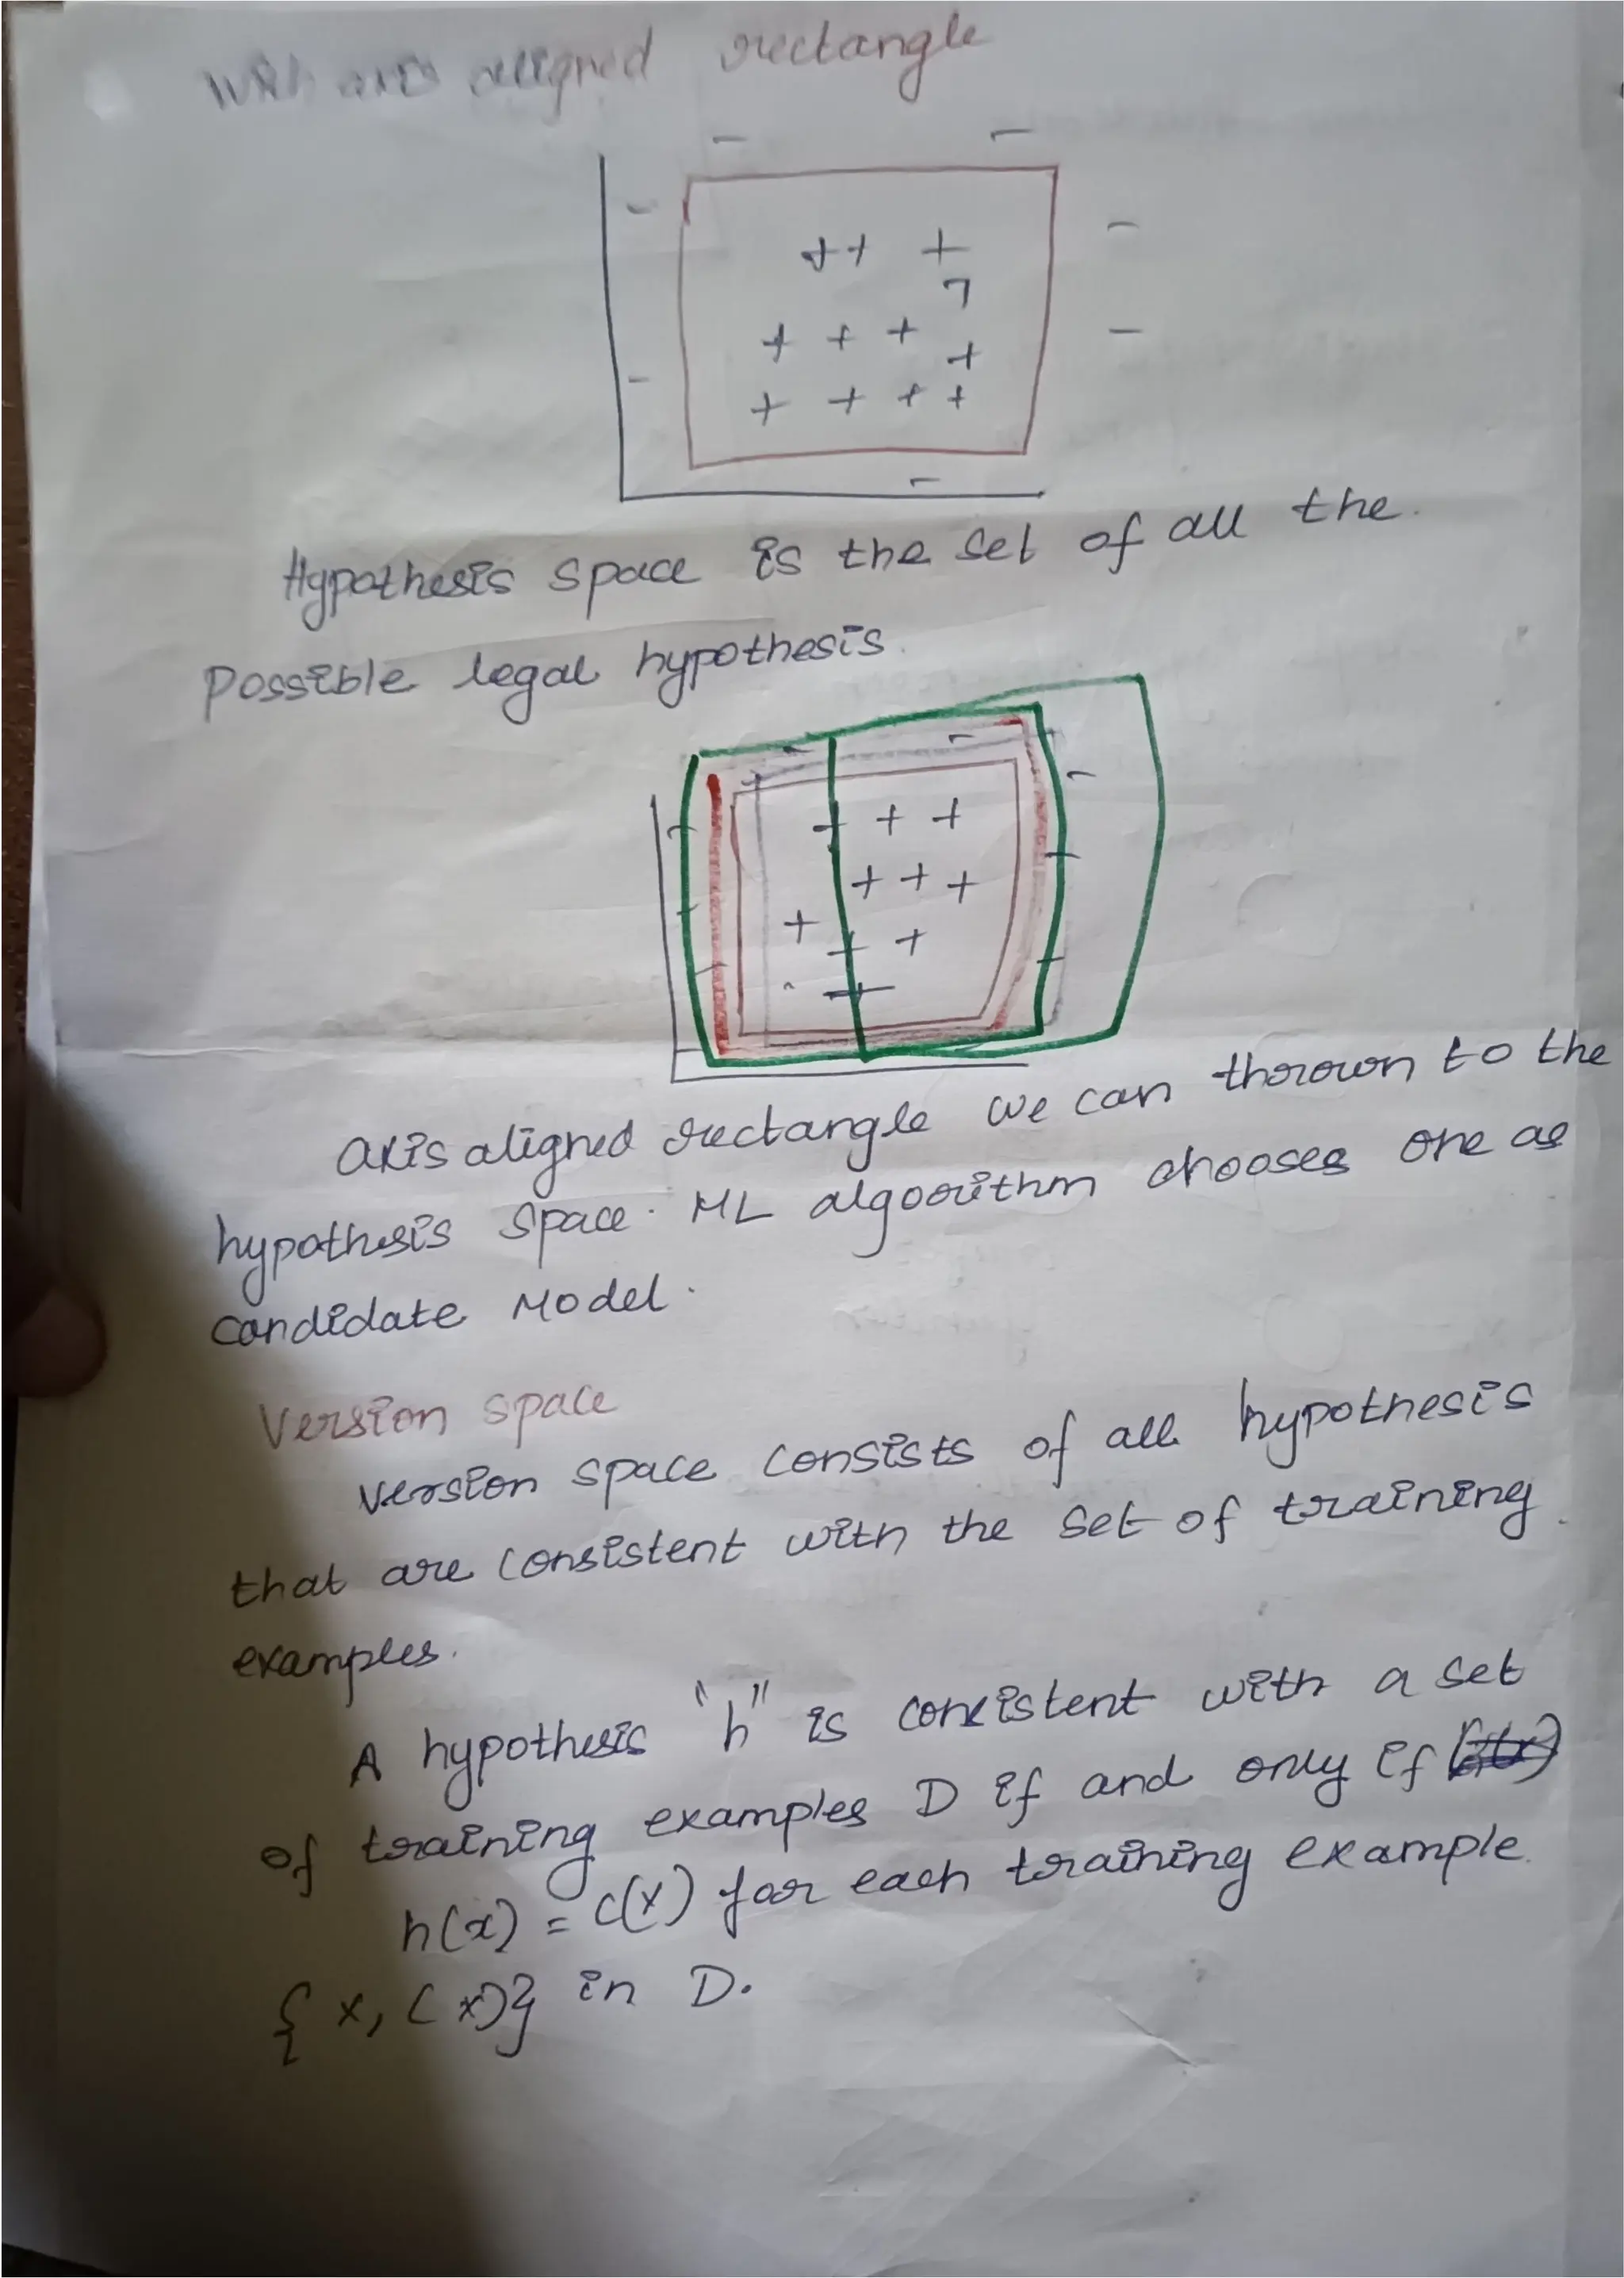 With axis aligned rectangle
Hypothesis space is the set of all the.
possible legal hypothesis.
axis aligned rectangle we can thrown to the
hypothesis space. ML algorithm chooses one as
candidate Model.
Version space
Version space consists of all hypothesis
that are consistent with the set of training.
examples.
A hypothesis "h" is consistent with a set
of training examples D if and only if
h(x) = c(x) for each training example.
{ x, (x)} in D.